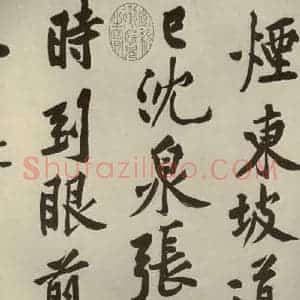 煙東坡道
已沈泉張
時到眼前
Shufaziliao.COM